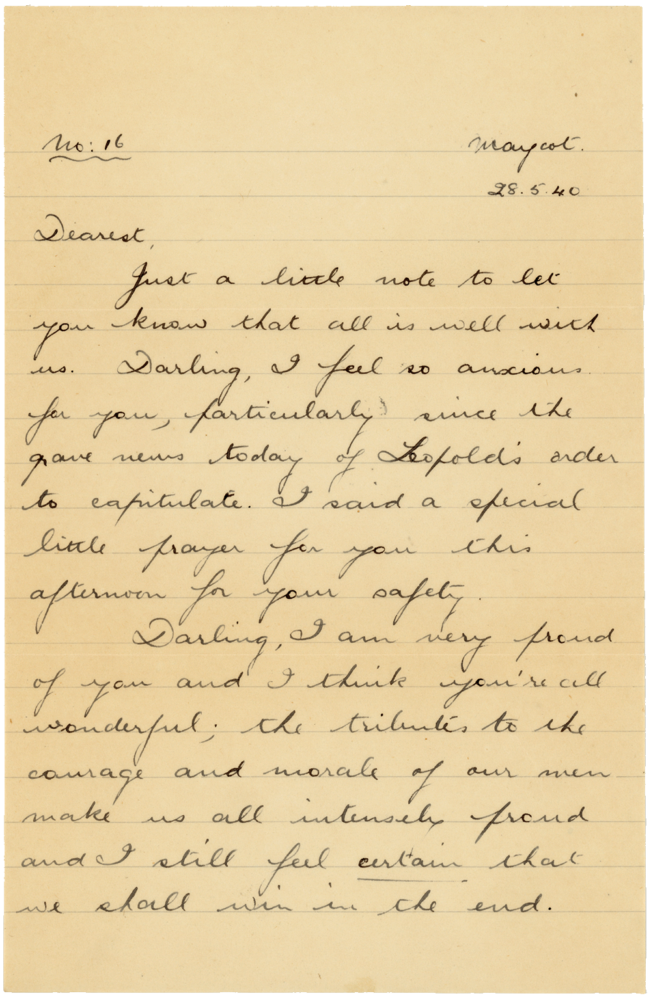 No: 16
Maycot.
28.5.40
Dearest,
Just a little note to let
you know that all is well with
us. Darling, I feel so anxious
for you, particularly since the
grave news today of Leopold's order
to capitulate. I said a special
little prayer for you this
afternoon for your safety.
Darling, I am very proud
of you and I think you're all
wonderful; the tributes to the
courage and morale of our men
make us all intensely proud
and I still feel certain that
we shall win in the end.